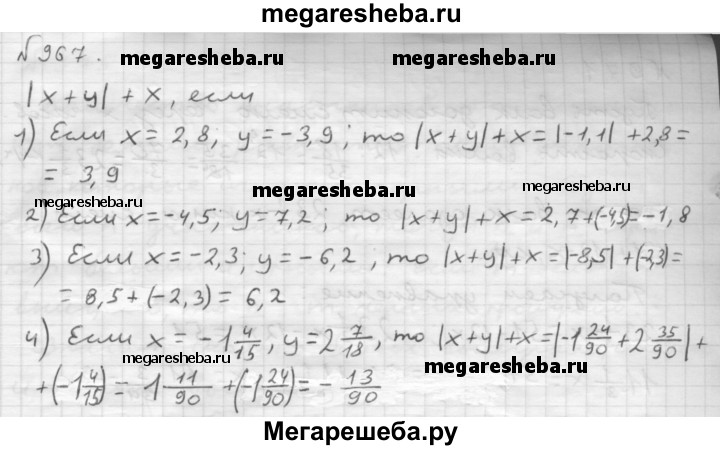 megaresheba.ru
№967.
megaresheba.ru
megaresheba.ru
|x+y|+x, если
1) Если x=2,8; y=-3,9; то |x+y|+x=|-1,1|+2,8=
= 3,9
megaresheba.ru
megaresheba.ru
megaresheba.ru
2) Если x=-4,5; y=7,2; то |x+y|+x=2,7+(-4,5)=-1,8
3) Если x=-2,3; y=-6,2, то |x+y|+x=|-8,5|+(-2,3)=
= 8,5+(-2,3)= 6,2
4) Если x=-1 4/15, y=2 7/18, то |x+y|+x=|-1 24/90+2 35/90|+
megaresheba.ru
megaresheba.ru
+(-1 4/15)= 1 11/90 +(-1 24/90)= - 13/90
Мегарешеба.ру